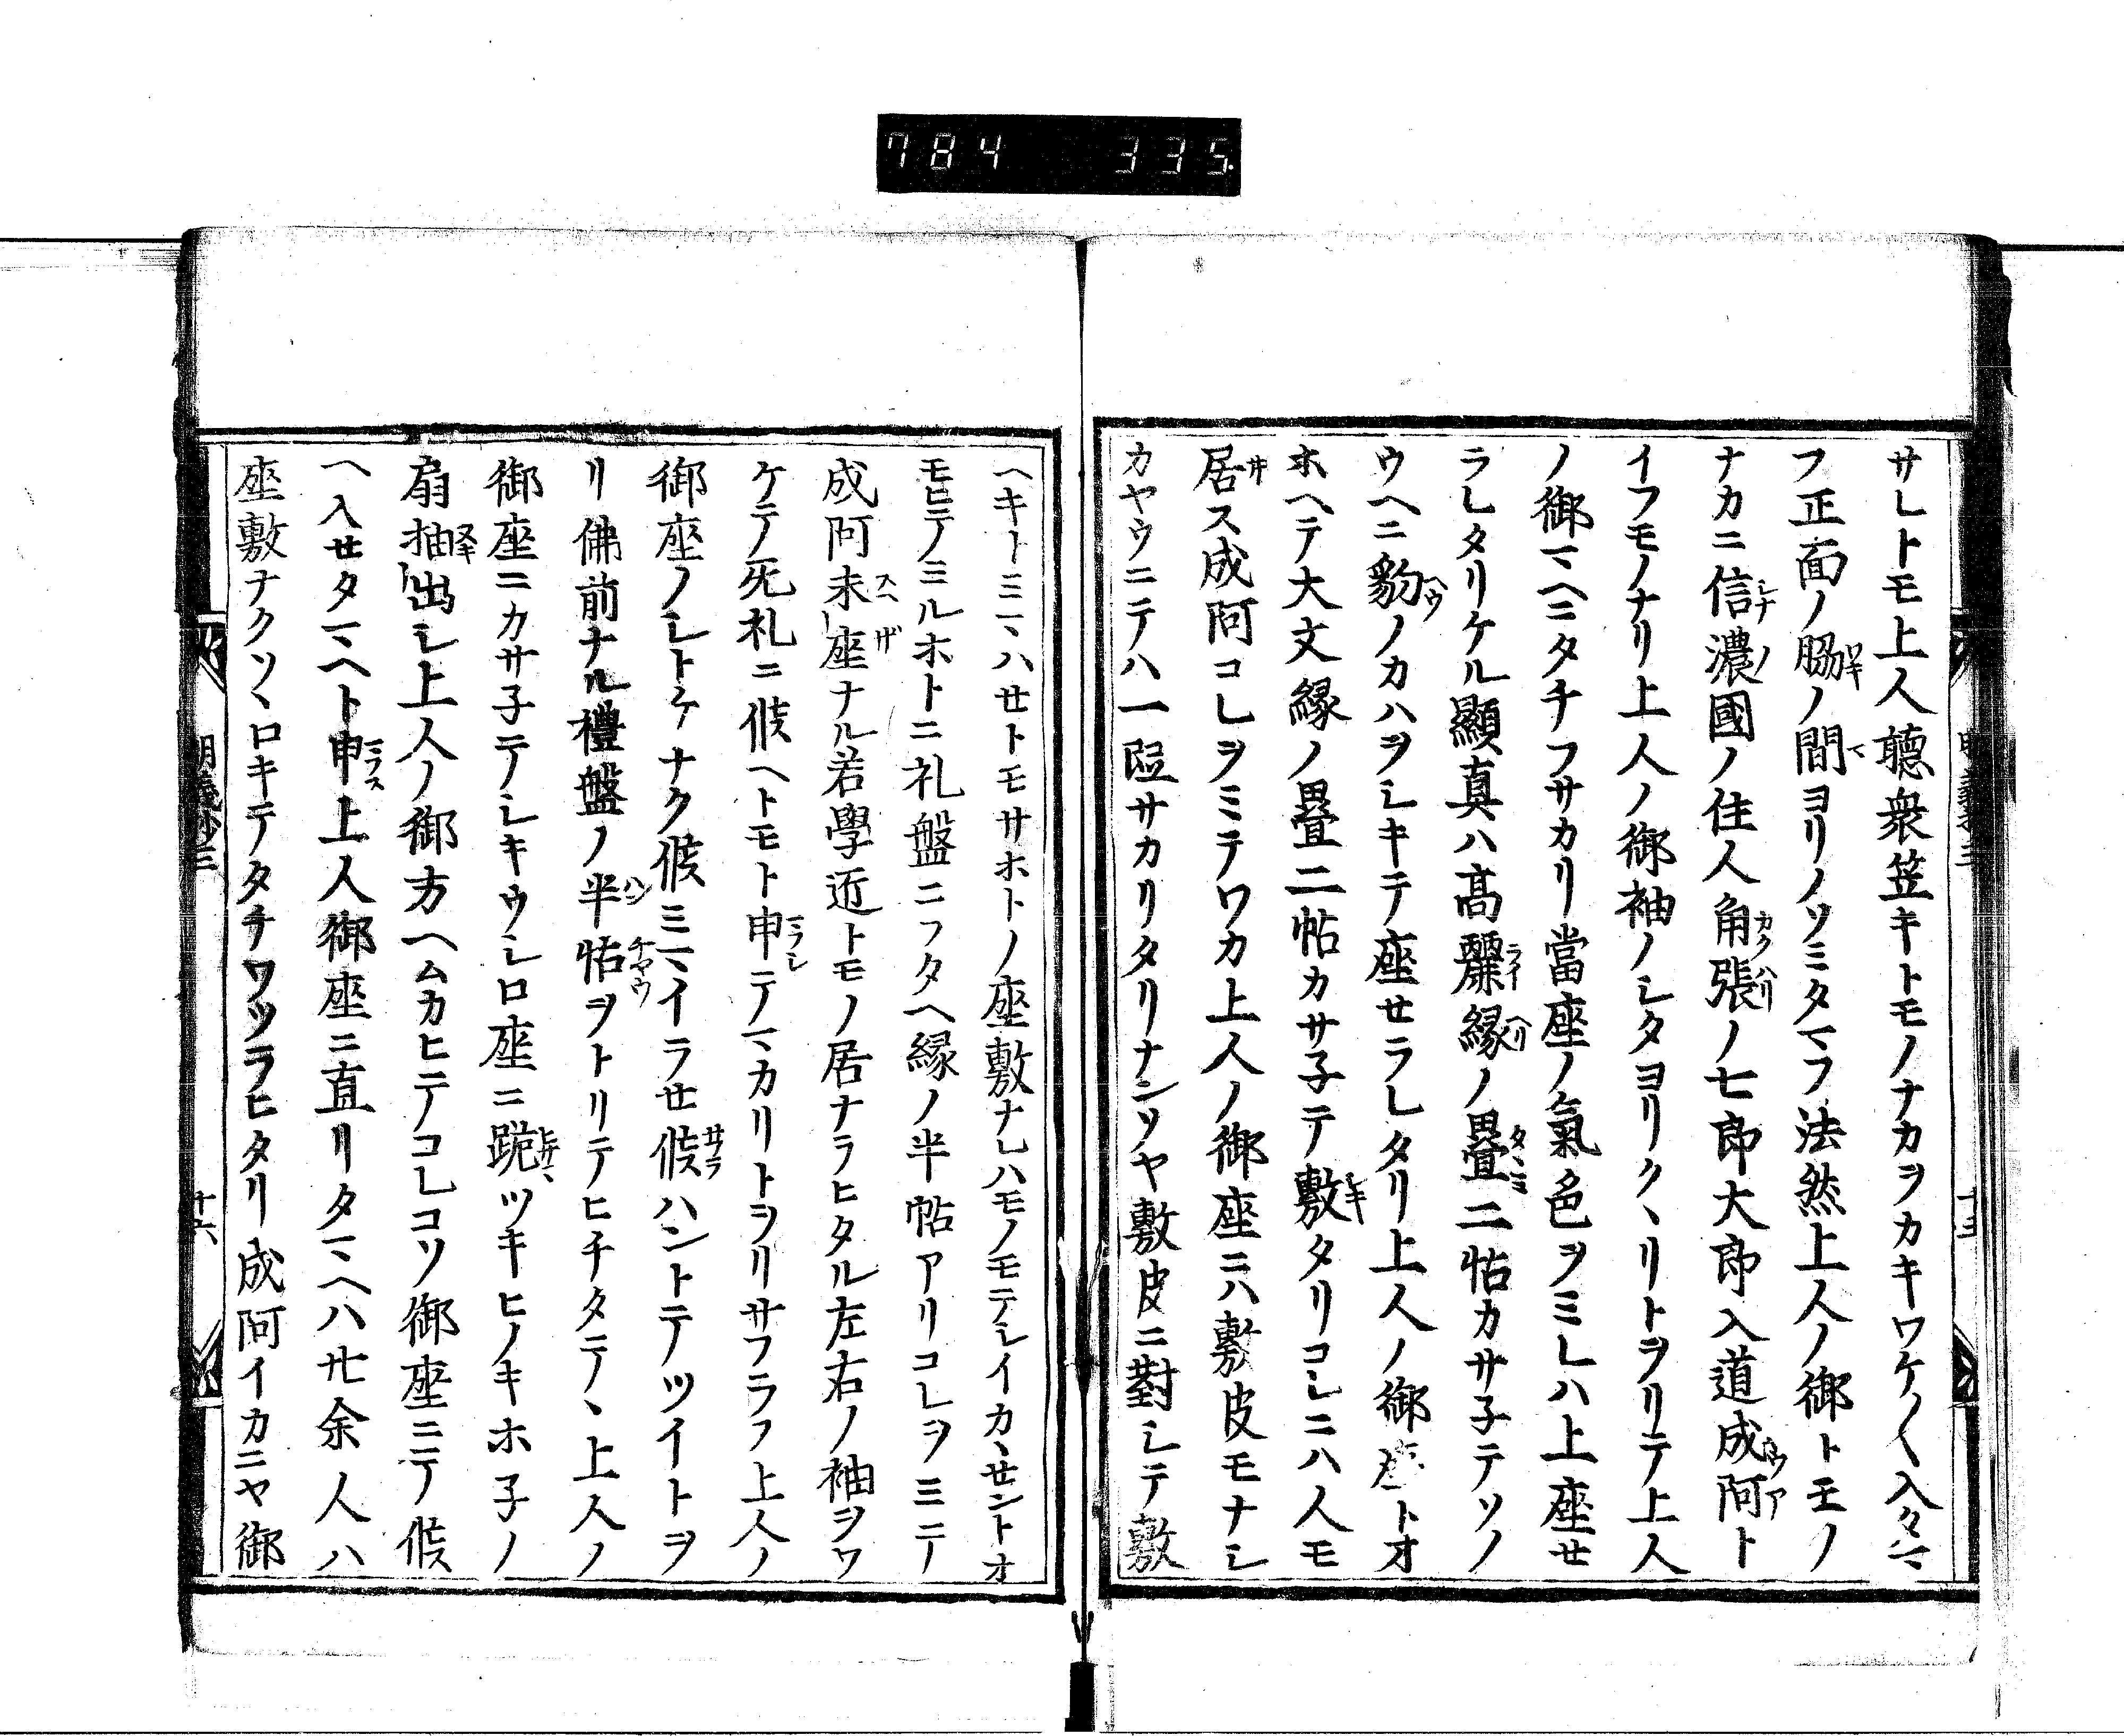 784 335
サレトモ上人聽衆笠キトモノナカヲカキワケ〱入々マ
フ正面ノ脇ノ間ヨリノソミタマフ法然上人ノ御トモノ
ナカニ信濃國ノ住人角張ノ七郎大郎入道成阿ト
イフモノナリ上人ノ御袖ノシタヨリクヽリトヲリテ上人
ノ御マヘニタチフサカリ當座ノ氣色ヲミレハ上座セ
ラレタリケル顯真ハ髙麗縁ノ疊二帖カサ子テソノ
ウヘニ豹ノカハヲシキテ座セラレタリ上人ノ御座トオ
ホヘテ大文縁ノ疊二帖カサ子テ敷タリコレニハ人モ
居ス成阿コレヲミテワカ上人ノ御座ニハ敷皮モナシ
カヤウニテハ一位サカリタリナンソヤ敷皮ニ對シテ敷
ヘキトミマヽハセトモサホトノ座敷ナレハモノモテレイカヽセントオ
モヒテノミルホトニ礼盤ニフタヘ縁ノ半帖アリコレヲミテ
成阿末座ナル若學近トモノ居ナラヒタル左右ノ袖ヲワ
ケテ死礼ニ候ヘトモト申テマカリトヲリサフラフ上人ノ
御座ノシトケナク候ミマイラセ候ハントテツイトヲ
リ佛前ナル禮盤ノ半帖ヲトリテヒチタテヽ上人ノ
御座ニカサ子テシキウシロ座ニ跪ツキヒノキホ子ノ
扇抽出シ上人ノ御方ヘムカヒテコレコソ御座ニテ候
ヘ入セタマヘト申上人御座ニ直リタマヘハ廿余人ハ
座敷ナクソヽロキテタチワツラヒタリ成阿イカニヤ御
明義抄三
十六